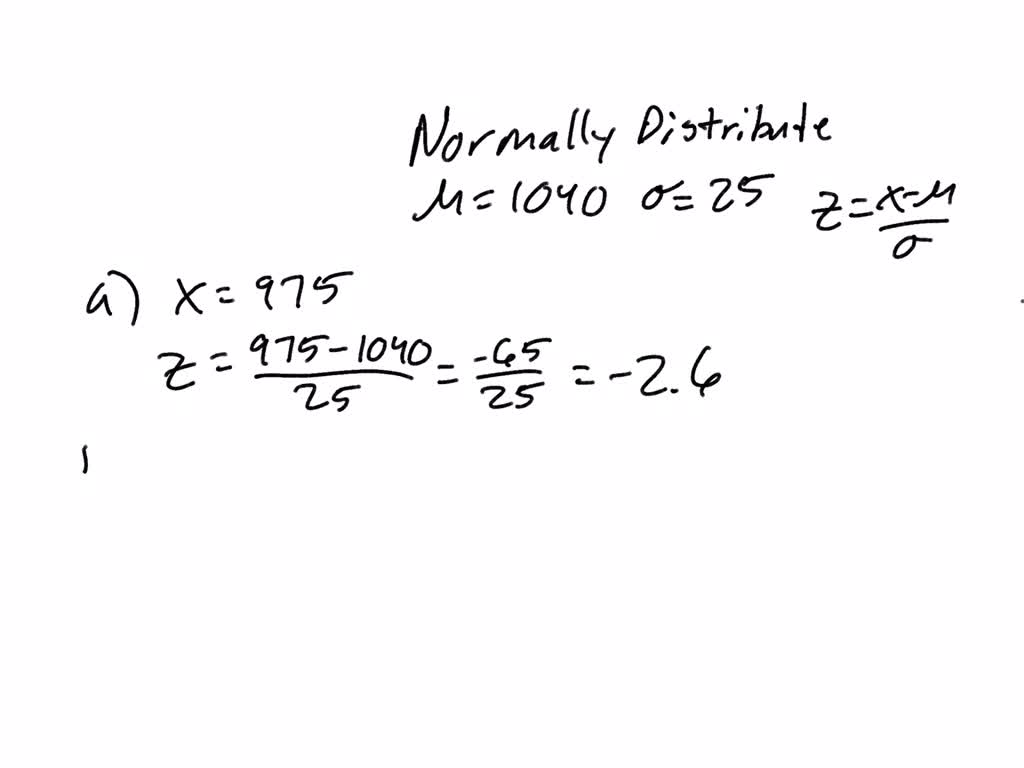 Normally Distribute
μ = 1040 σ = 25 z = x-μ/σ
a) x = 975
z = 975-1040/25 = -65/25 = -2.6